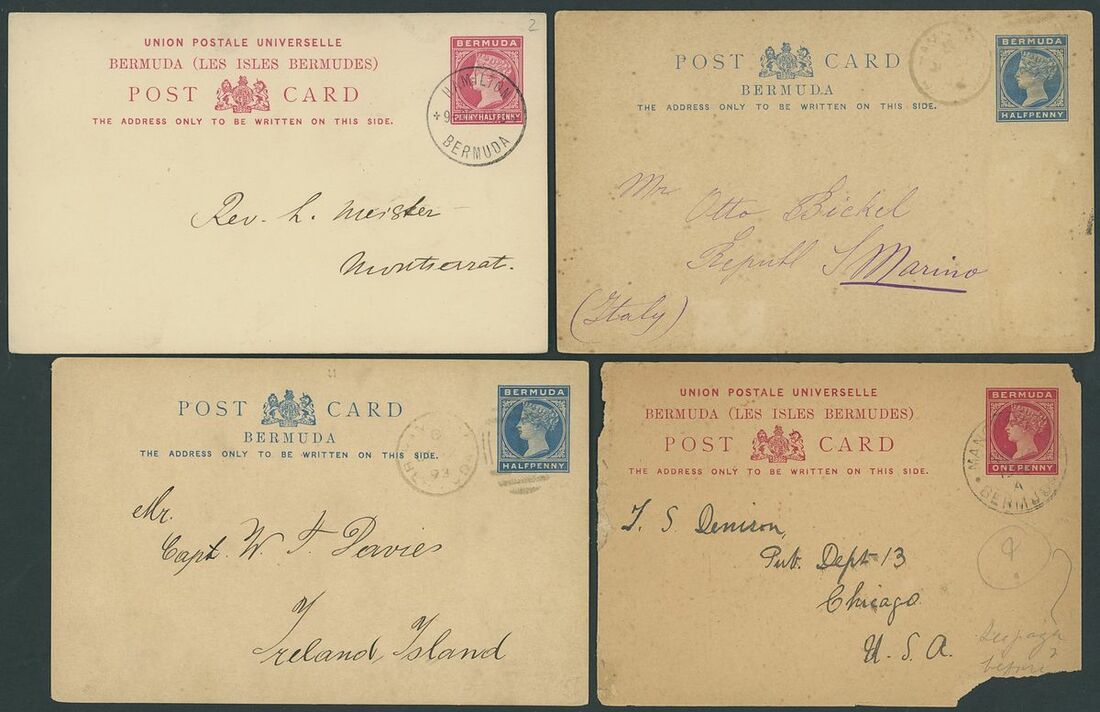 2
UNION POSTALE UNIVERSELLE
BERMUDA (LES ISLES BERMUDES)
POST CARD
THE ADDRESS ONLY TO BE WRITTEN ON THIS SIDE.
BERMUDA
PENNY HALFPENNY
HAMILTON
BERMUDA
Rev. L. Meister
Montserrat.
POST CARD
BERMUDA
THE ADDRESS ONLY TO BE WRITTEN ON THIS SIDE.
BERMUDA
HALFPENNY
Mr Otto Bickel
Republ S. Marino
(Italy)
POST CARD
BERMUDA
THE ADDRESS ONLY TO BE WRITTEN ON THIS SIDE.
BERMUDA
HALFPENNY
93
Mr.
Capt. W. F. Davies
Ireland Island
UNION POSTALE UNIVERSELLE
BERMUDA (LES ISLES BERMUDES)
POST CARD
THE ADDRESS ONLY TO BE WRITTEN ON THIS SIDE.
BERMUDA
ONE PENNY
MAN
A
BERMUDA
T. S. Denison,
Pub. Dept 13
Chicago
U. S. A.
before